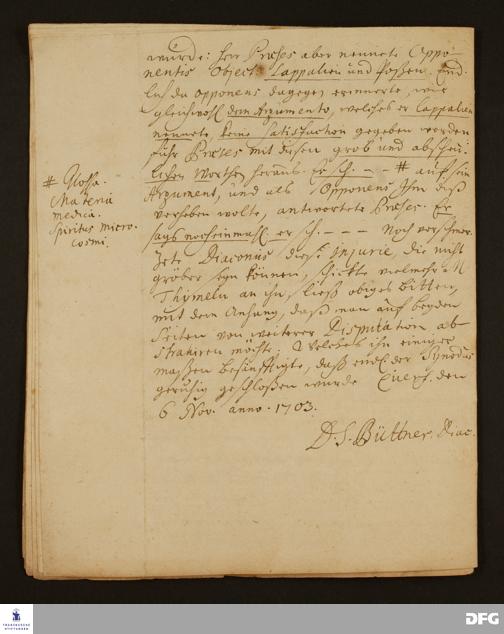 wurde: Herr Præses aber nennete Oppo-
nentis Object. Lappalien und Poßen. End-
lich da Opponens dagegen erinnerte, wie
gleichwohl dem Argumento, welches er Lappalien
nennete, keine Satisfaction gegeben worden
fuhr Præses mit diesen grob und abscheu-
lichen Worthen heraus: Er sch. - - # auff sein
Argument, und als Opponens Ihm diß
verheben wolte, antwortete Præses. Er
sags noch einmahl er sch. - - - Noch verschmer-
zete Diaconus diese injurie, die nicht
gröber seyn können, schickte vielmehr M
Thymeln an ihn, ließ obiges bitten,
mit dem Anhang, daß man auf beyden
Seiten von weiterer Disputation ab-
strahiren möchte. Welches ihn einiger
maßen besänfftigte, daß endl. der Synodus
geruhig geschloßen wurde den
6 Nov. anno. 1703.
D. S. Büttner. Diac.
# Glossa.
Materia
medica.
Spiritus micro-
cosmi.
FRANCKESCHE
STIFTUNGEN
DFG